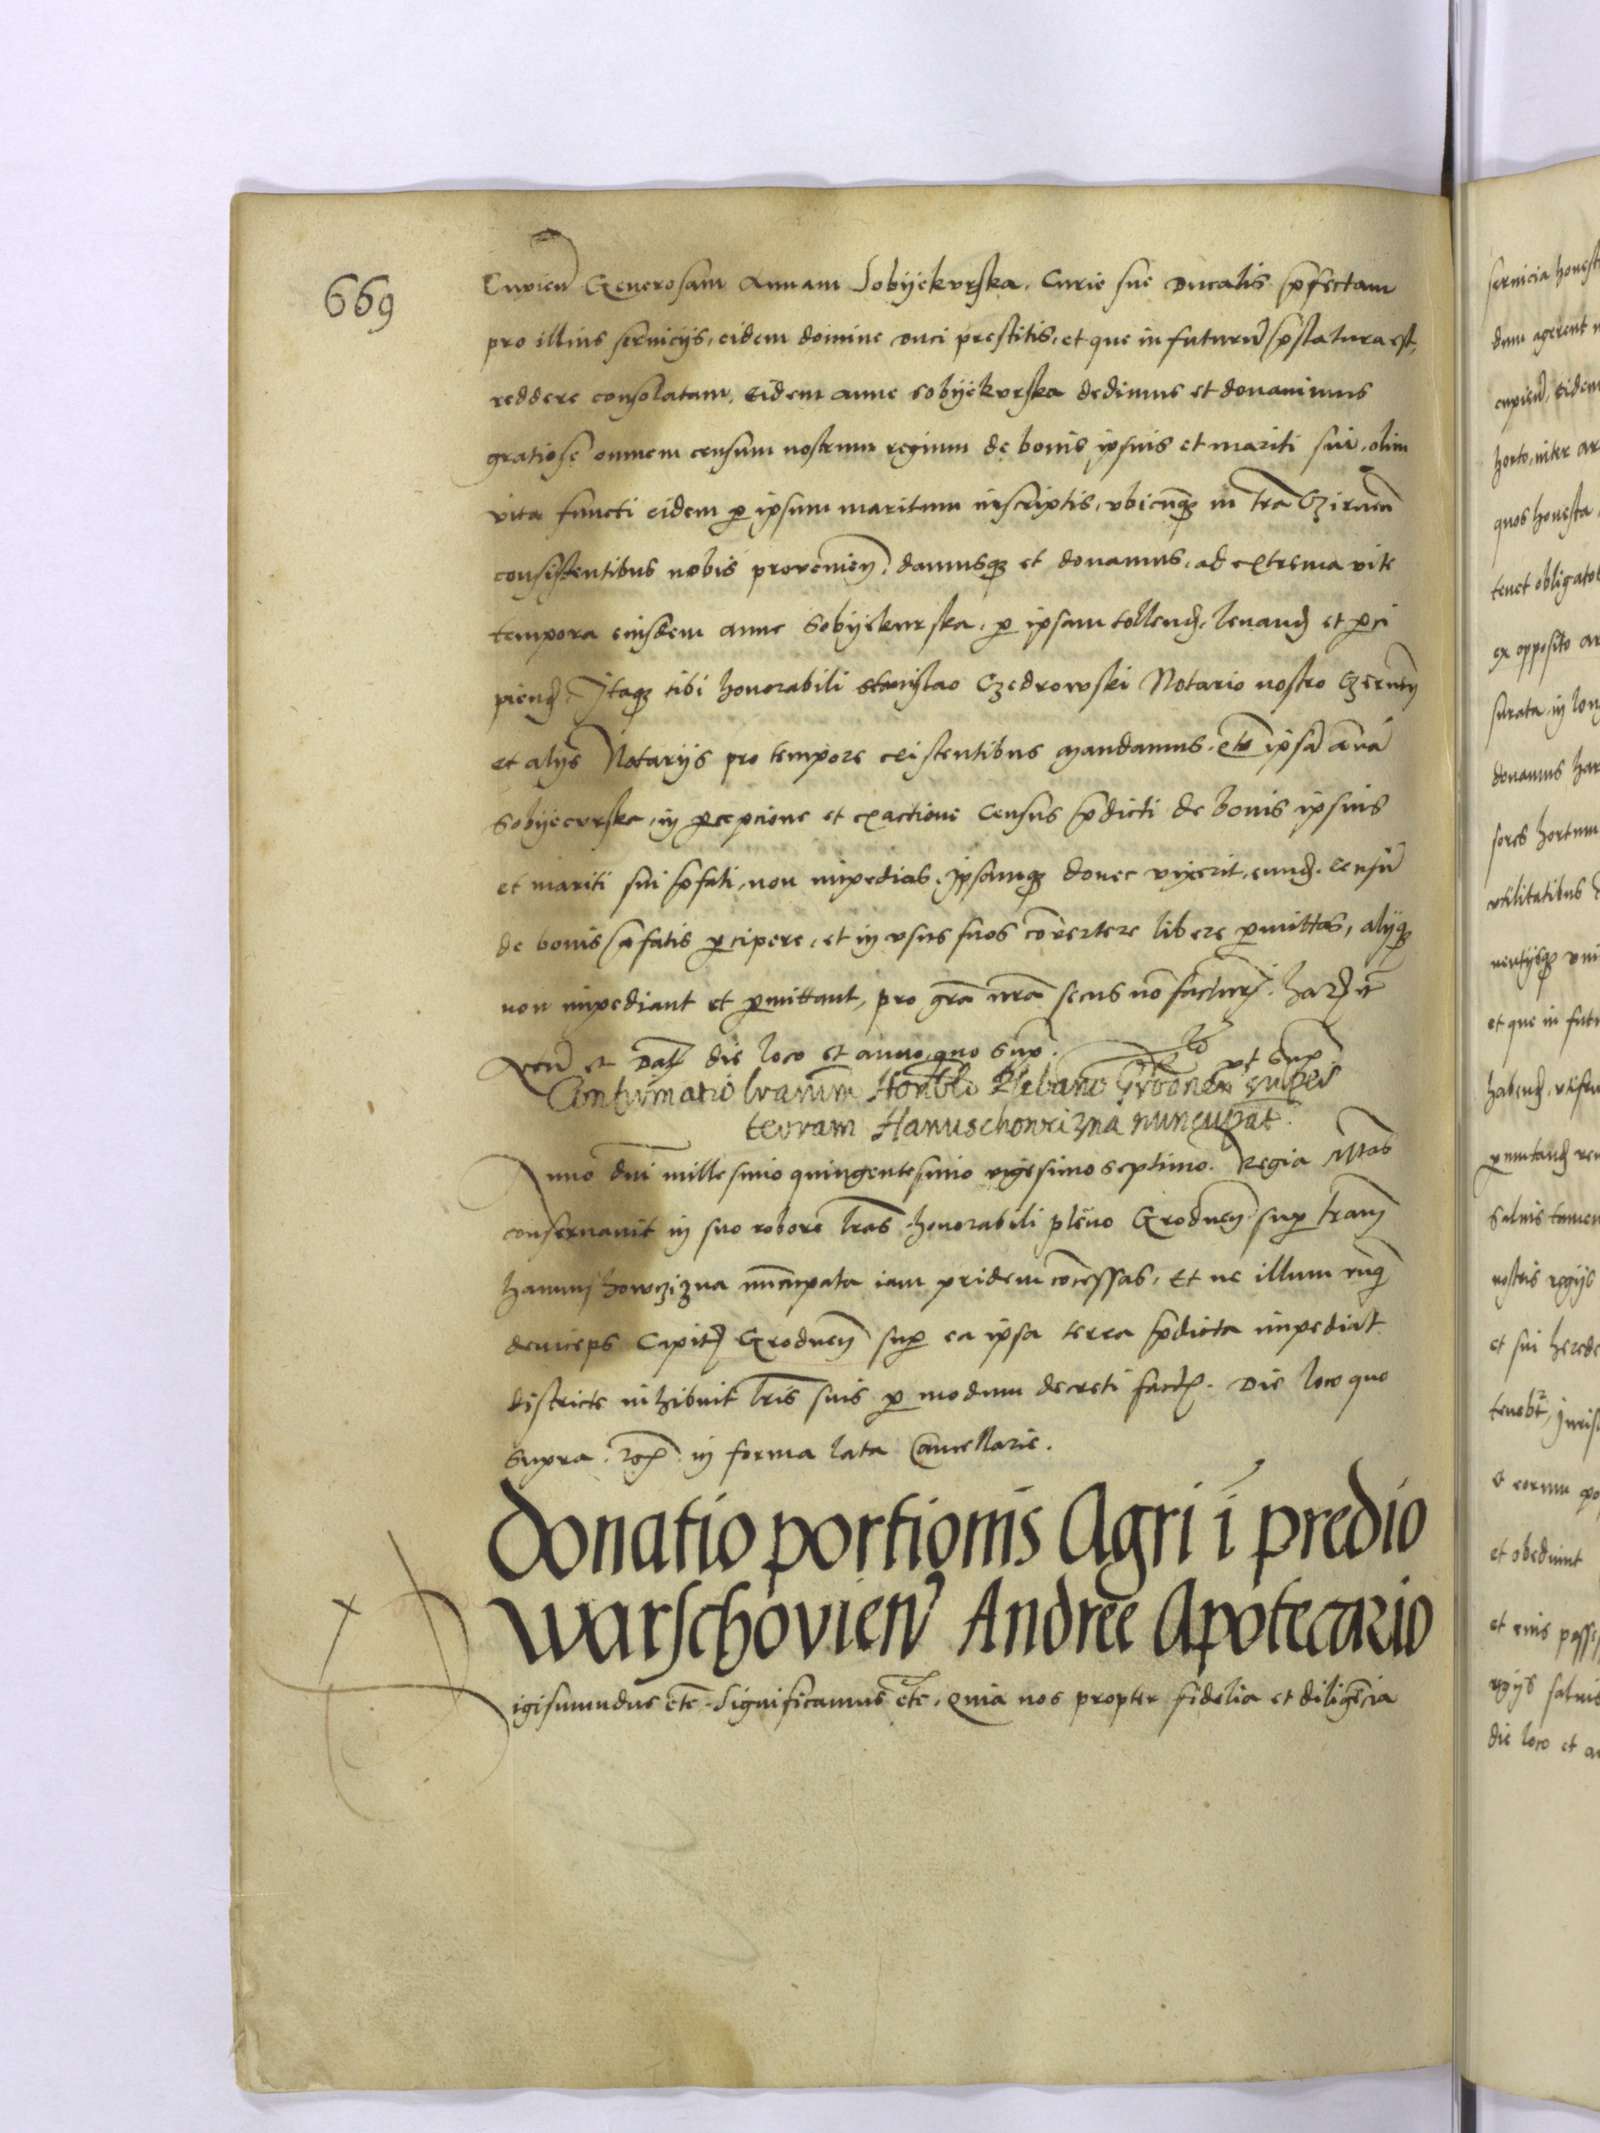 669
Cupien Generosam Annam Sobyekvrska. Curie sue Ducalis pfectam
pro illius seruicijs, eidem domine duci prestitis, et que in futurū pstatura est,
reddere consolatam, Eidem anne Sobyekvrska dedimus et donauimus
gratiose omnem censum nostrum regium de bonis ipsius et mariti sui, olim
vita functi eidem p ipsum maritum inscriptis, vbicūqȝ in tra
consistentibus nobis prouenieñ, damusqȝ et donamus, ad extrema vite
tempora eiusdem anne Sobyekurska, p ipsam tollend, leuand et pci
piend. Itaqȝ tibi honorabili Stanislao Czedrowski Notario nostro
et alijs Notarijs pro tempore existentibus mandamus, ipsā annā
Sobyecvrska, in pcepcione et exactione census pdicti de bonis ipsius
et mariti sui pfati, non impedias, Ipsamqȝ donec vixerit, eund. censū
de bonis pfatis pcipere, et in vsus suos cōvertere libere pmittas, alijqȝ
non impediant et pmittant, pro grā nrā secus nō facturj.
et Dat die loco et anno quo supͣ. ut supͣ
Confirmatio lrarum Honbli Plebano Grodneñ super
terram Hanuschowczizna nuncupat.
Anno dni millesimo quingentesimo vigesimo septimo. Regia Mtas
conseruauit in suo robore lras honorabili plēno Grodneñ sup tram
Hanuschowczizna nūcupata iam pridem cōcessas, Et ne illum
deinceps Capit Grodneñ sup ea ipsa terra pdicta impediat
districte inhibuit lris suis p modum decreti fact. Die loco quo
supra. in forma lata Cancellarie.
Donatio portionis Agri ī predio
Warschovien Andree Apotecario
igismundus etc. Significamus etc. Quia nos propter fidelia et diligēcia
seruicia honest
dum agerent
cupien, Eidem
horto, inter ar
quos honesta
tenet obligatos
ex opposito ar
surata in lon
donamus
sores hortum
vtilitatibus
et que in futu
Saluis tamen
nostris regijs
et sui herede
et obediunt
et eius posses
die loco et a